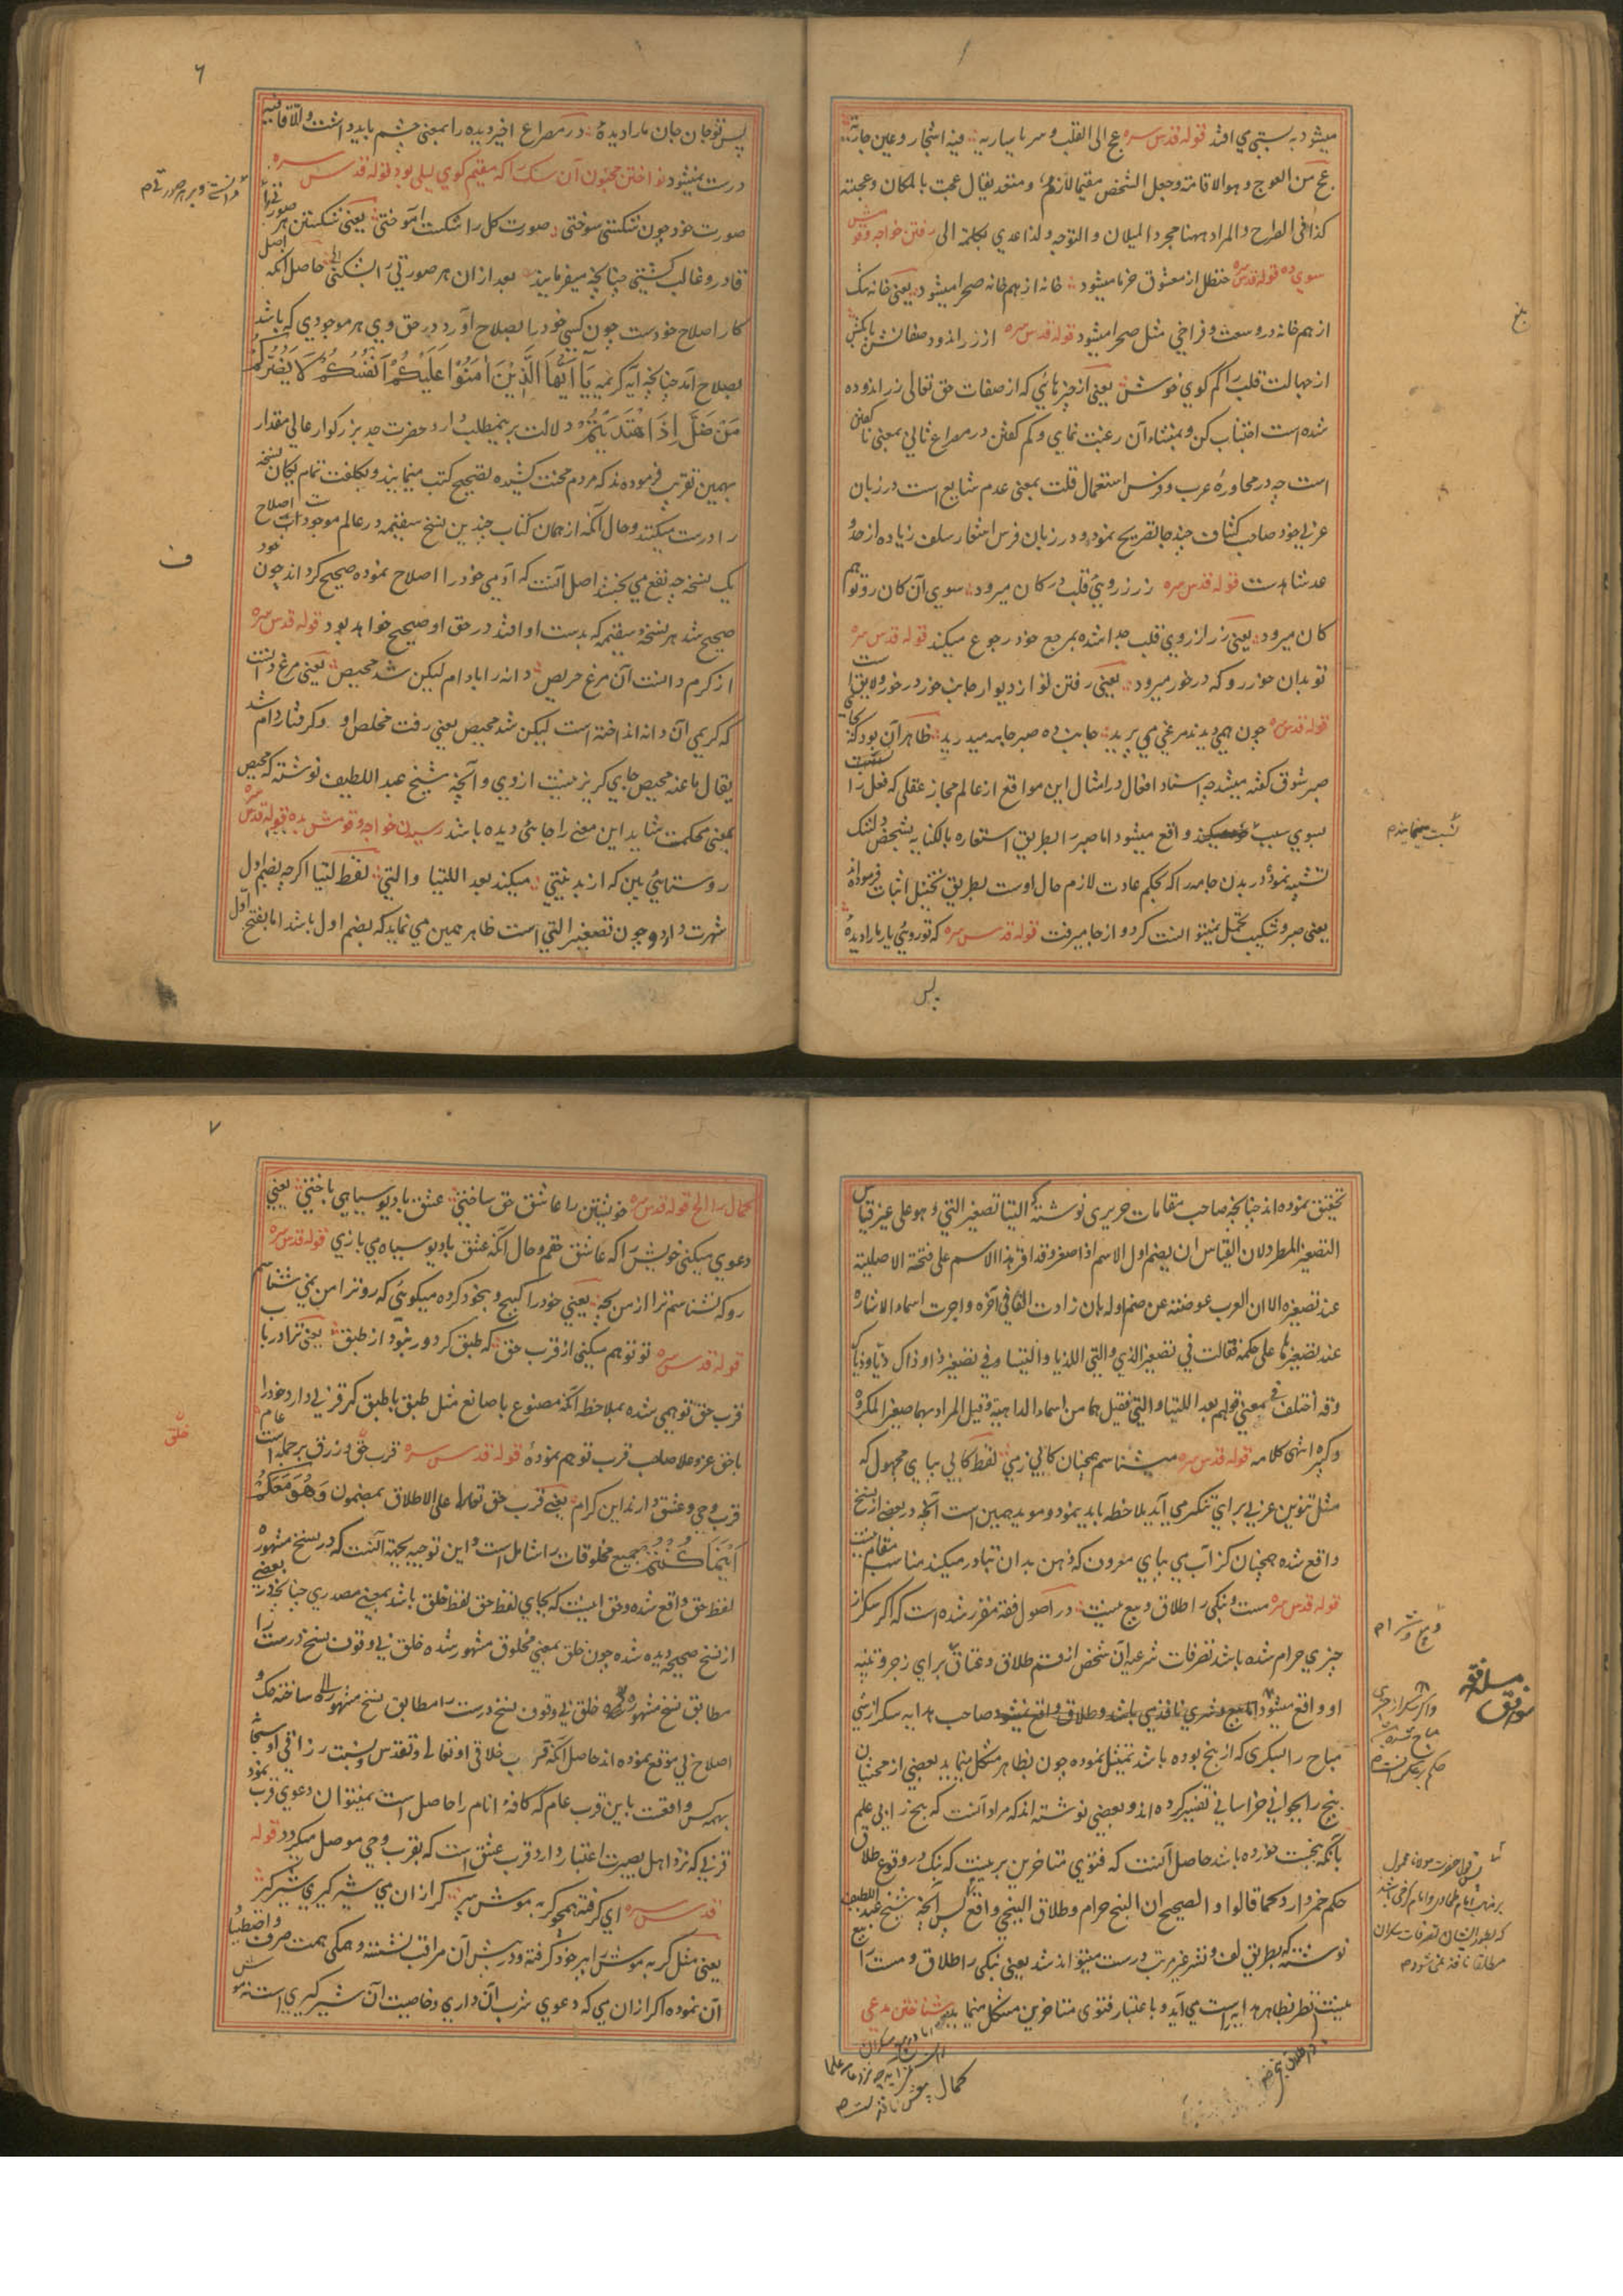 میشود به پستی می افتد قوله قدس سره عج الی القلب و سر یا ساریه فیه اشجار و عین جاریه
عج من العوج و هو الاقامة و جعل الشخص مقیما لازم و متعد یقال عجت بالمکان و عجته
کذا فی الصراح و المراد ههنا مجرد المیلان و التوجه و لذا عدی بکلمة الی رفتن خواجه و قومش
سوی ده قوله قدس سره حنظل از معشوق خرما میشود خانه از همخانه صحرا میشود یعنی خانه تنگ
از همخانه در وسعت و فراخی مثل صحرا میشود قوله قدس سره از زر اندود صفا لشن پاکش
از جهالت قلب را کم گوی خوش یعنی از چیزهائی که از صفات حق تعالی زر اندوده
شده است اجتناب کن و بمنشاء آن رغبت نمای و کم گفتن در مصراع ثانی بمعنی ناگفتن
است چه در محاوره عرب و فرس استعمال قلت بمعنی عدم شایع است در زبان
عربی خود صاحب کشاف چند جا تصریح نموده و در زبان فرس اشعار سلف زیاده از حد و
عد شاهدست قوله قدس سره زر ز روی قلب در کان میرود سوی آن کان رو تو هم
کان میرود یعنی زر از روی قلب جدا شده بمرجع خود رجوع میکند قوله قدس سره
تو بدان خور رو که در خور میرود یعنی رفتن نور از دیوار جانب خور در خور و لایق است
قوله قدس سره چون همی دیدند مرغی می پرید جانب ده صبر جامه میدرید ظاهر آن بود که بجای
صبر شوق گفته میشد چه اسناد افعال در امثال این مواقع از عالم مجاز عقلی که فعل را
بسوی سبب واقع میشود اما صبر را بطریق استعاره بالکنایه بشخص دلتنگ
تشبیه نموده دریدن جامه را که بحکم عادت لازم حال اوست بطریق تخییل اثبات فرموده اند
یعنی صبر و شکیب تحمل نیتوانست کرد و از جا میرفت قوله قدس سره که تو روی یار ما را دیدهٔ
پس
بلغ
نسبت مینمایند م
٦
پس تو جان جان ما را دیدهٔ در مصراع اخیر دیده را بمعنی چشم باید داشت و الا قافیه
درست نمیشود نواختن مجنون آن سگ را که مقیم کوی لیلی بود قوله قدس سره
صورت خود چون شکستی سوختی صورت کل را شکست آموختی یعنی شکستن هر صورتی را
قادر و غالب گشتی چنانچه میفرمایند بعد ازان هر صورتی را بشکنی الی حاصل آنکه اصل
کار اصلاح خودست چون کسی خود را بصلاح آورد در حق وی هر موجودی که باشد
بصلاح آید چنانچه آیه کریمه یَا أَیُّهَا الَّذِیْنَ آمَنُوْا عَلَیْکُمْ أَنْفُسَکُمْ لَا یَضُرُّکُمْ
مَنْ ضَلَّ إِذَا اهْتَدَیْتُمْ دلالت برینمطلب دارد حضرت جد بزرگوار عالی مقدار
بهمین تقریب فرموده اند که مردم محنت کشیده بتصحیح کتب مینمایند و بکلفت تمام یکان نسخه
را درست میکنند و حال آنکه از همان کتاب چندین نسخ سقیمه در عالم موجود است اصلاح
یک نسخه چه نفع می بخشد اصل آنست که آدمی خود را اصلاح نموده صحیح گرداند چون خود
صحیح شد هر نسخه سقیمه که بدست او افتد در حق او صحیح خواهد بود قوله قدس سره
از کرم دانست آن مرغ حریص دانه را با دام لیکن شد محیص یعنی مرغ دانست
که کریمی آن دانه انداخته است لیکن شد محیص یعنی رفت مخلص او و گرفتار دام شد
یقال ما عنه محیص جای گریز نیست از وی و آنچه شیخ عبد اللطیف نوشته که محیص
بمعنی محکمست شاید این معنی را جائی دیده باشد رسیدن خواجه و قومش بده قوله قدس سره
روستایی بین که از بد نیتی میکند بعد اللتیا والتی لفظ لتیا اگرچه بضم اول
شهرت دارد و چون تصغیر التی است ظاهر همین می نماید که بضم اول باشد اما بفتح اول
ف
تحقیق نموده اند چنانچه صاحب مقامات حریری نوشته که اللتیا تصغیر التی و هو علی غیر قیاس
التصغیر المطرد لان القیاس ان یضم اول الاسم اذا صغر و قد اقر هذا الاسم علی فتحة الاصلیة
عند تصغیره الا ان العرب عوضته عن ضم اوله بان زادت الفا فی آخره و اجرت اسماء الاشارة
عند تصغیرها علی حکمه فقالت فی تصغیر الذی و التی اللذیا و اللتیا و فی تصغیر ذا و ذاک ذیا و ذیاک
و قد اختلف فی معنی قولهم بعد اللتیا و التی فقیل هما من اسماء الداهیة و قیل المراد بهما صغیر المکروه
و کبیره انتهی کلامه قوله قدس سره میشناسم همچنان کابی زمی لفظ کابی بیای مجهول که
مثل تنوین عربی برای تنکیر می آید ملاحظه باید نمود و موید همین است آنچه در بعضی از نسخ
واقع شده همچنان کز آب می بیای معروف که ذهن بدان تبادر میکند مناسب مقام نیست
قوله قدس سره مست و بنگی را طلاق و بیع نیست در اصول فقه مقرر شده است که اگر سکر از
چیزی حرام شده باشد تصرفات شرعیه آن شخص از قسم طلاق و عتاق برای زجر و تنبیه
او واقع میشود صاحب هدایه سکر ازشی
مباح را بسکری که از بنج بوده باشد تمثیل نموده چون بظاهر مشکل مینماید بعضی از محشیان
بنج را بجوانی خراسانی تفسیر کرده اند و بعضی نوشته اند که مراد آنست که بنج را بی علم
بآنکه بنجست خورده باشد حاصل آنست که فتوی متاخرین برینست که بنگ در وقوع طلاق
حکم خمر دارد کما قالوا و الصحیح ان البنج حرام و طلاق البنجی واقع پس آنچه شیخ عبد اللطیف
نوشته که بطریق لف و نشر غیر مرتب درست میتواند شد یعنی بنگی را طلاق و مست را بیع
نیست نظر بظاهر هدایه راست می آید و باعتبار فتوی متاخرین مشکل مینماید شناختن مدعی
کمال
و بیع و شرا م
مسئله فقه
واگر سکر از چیزی
مباح شده
قول حضرت مولانا محمول
بر مذهب امام طحاوی و امام کرخی باشد
که بطور ایشان تصرفات سکران
مطلقا نافذ نمی شود م
٧
کمال را الخ قوله قدس سره خویشتن را عاشق حق ساختی عشق با دیو سیاهی باختی یعنی
دعوی میکنی خویش را که عاشق حقم و حال آنکه عشق با دیو سیاه می بازی قوله قدس سره
رو که نشناسم ترا از من بجه یعنی خود را گیج و بیخود کرده میگوئی که رو ترا من نمی شناسم
قوله قدس سره تو توهم میکنی از قرب حق که طبق گر دور نبود از طبق یعنی ترا در باب
قرب حق توهمی شده بملاحظه آنکه مصنوع با صانع مثل طبق با طبق گر قربی دارد خود را
باحق عز و علا صاحب قرب توهم نموده قوله قدس سره قرب حق و رزق بر جمله است عام
قرب وحی و عشق دارند این کرام یعنی قرب حق تعالی علی الاطلاق بمضمون وَهُوَ مَعَکُمْ
أَیْنَمَا کُنْتُمْ جمیع مخلوقات را شامل است و این توجیه بجهة آنست که در نسخ مشهوره
لفظ حق واقع شده و حق اینست که بجای لفظ حق لفظ خلق باشد بمعنی مصدری چنانچه در بعضی
از نسخ صحیحه دیده شده چون خلق بمعنی مخلوق مشهور شده خلق بی وقوف نسخ درست را
مطابق نسخ مشهوره خلق بی وقوف نسخ درست را مطابق نسخ مشهوره ساخته حک و
اصلاح بی موقع نموده اند حاصل آنکه قرب خلاقی او تعالی و تقدس و نسبت رزاقی او سبحانه
بهمه کس واقعست با این قرب عام که کافه انام را حاصل است نمیتوان دعوی قرب نمود
قربی که نزد اهل بصیرت اعتبار دارد قرب عشق است که بقرب وحی موصل میگردد قوله
قدس سره ای گرفته همچو گربه موش پیر گر ازان می شیر گیری شیر گیر
یعنی مثل گربه موش را پیر خود گرفته و در پیش آن مراقب نشسته و همگی همت صرف و اصطیاد
آن نموده اگر ازان می که دعوی شرب آن داری و خاصیت آن شیر گیری است نه موش
خلق